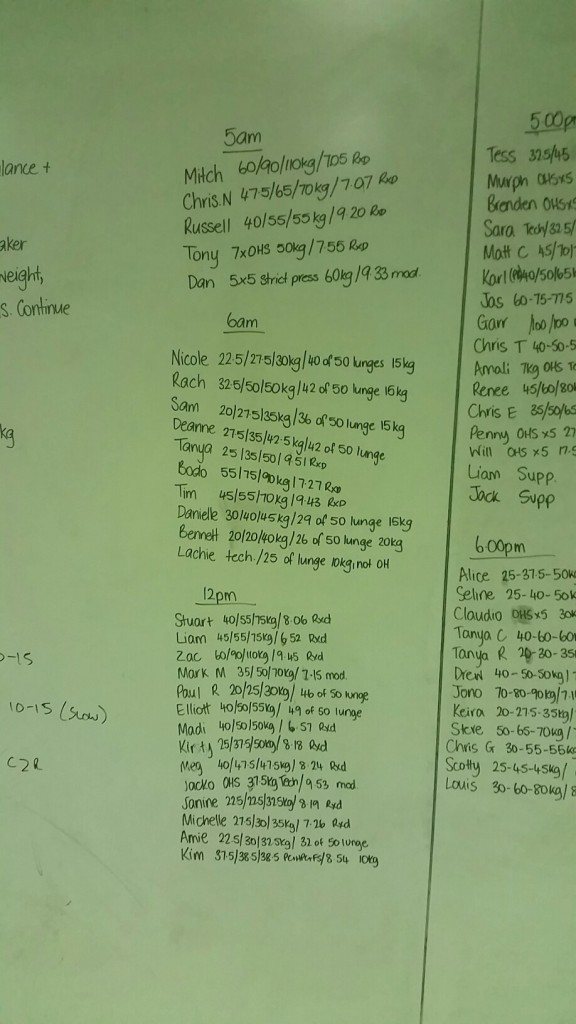 lance +
aker
weight,
s. Continue
kg
0-15
10-15 (slow)
C2R
5am
Mitch 60/90/110kg/7.05 Rxd
Chris.N 47.5/65/70kg/7.07 Rxd
Russell 40/55/55kg/9.20 Rxd
Tony 7xOHS 50kg/7.55 Rxd
Dan 5x5 strict press 60kg/9.33 mod.
6am
Nicole 22.5/27.5/30kg/40 of 50 lunges 15kg
Rach 32.5/50/50kg/42 of 50 lunge 15kg
Sam 20/27.5/35kg/36 of 50 lunge 15kg
Deanne 27.5/35/42.5kg/42 of 50 lunge
Tanya 25/35/50/9.51 Rxd
Bodo 55/75/90kg/7.27 Rxd
Tim 45/55/70kg/9.43 RxD
Danielle 30/40/45kg/29 of 50 lunge 15kg
Bennett 20/20/40kg/26 of 50 lunge 20kg
Lachie tech./25 of lunge 10kg, not OH
12pm
Stuart 40/55/75kg/8.06 Rxd
Liam 45/55/75kg/6.52 Rxd
Zac 60/90/110kg/9.45 Rxd
Mark M 35/50/70kg/7.15 mod.
Paul R 20/25/30kg/46 of 50 lunge
Elliott 40/50/55kg/49 of 50 lunge
Madi 40/50/50kg/6.57 Rxd
Kirsty 25/37.5/50kg/8.18 Rxd
Meg 40/47.5/47.5kg/8.24 Rxd
Jacko OHS 37.5kg Tech/9.53 mod
Janine 22.5/22.5/32.5kg/8.19 Rxd
Michelle 27.5/30/35kg/7.26 Rxd
Amie 22.5/30/32.5kg/32 of 50 lunge
Kim 37.5/38.5/38.5 /8.54 10kg
5.00pm
Tess 32.5/45
Murph OHSx5
Brenden OHSx5
Sara Tech/32.5/
Matt C 45/70/
Karl 40/50/65k
Jas 60-75-77.5
Garr 100/100
Chris T 40-50-5
Amali 7kg OHS Te
Renee 45/60/80k
Chris E 35/50/65
Penny OHS x5 27
Will OHS x5 17.5
Liam Supp.
Jack Supp
6.00pm
Alice 25-37.5-50k
Seline 25-40-50k
Claudio OHSx5 30k
Tanya C 40-60-60
Tanya R 20-30-35
Drew 40-50-50kg/
Jono 70-80-90kg/7.1
Keira 20-27.5-35kg/
Steve 50-65-70kg/
Chris G 30-55-55k
Scotty 25-45-45kg/
Louis 30-60-80kg/8